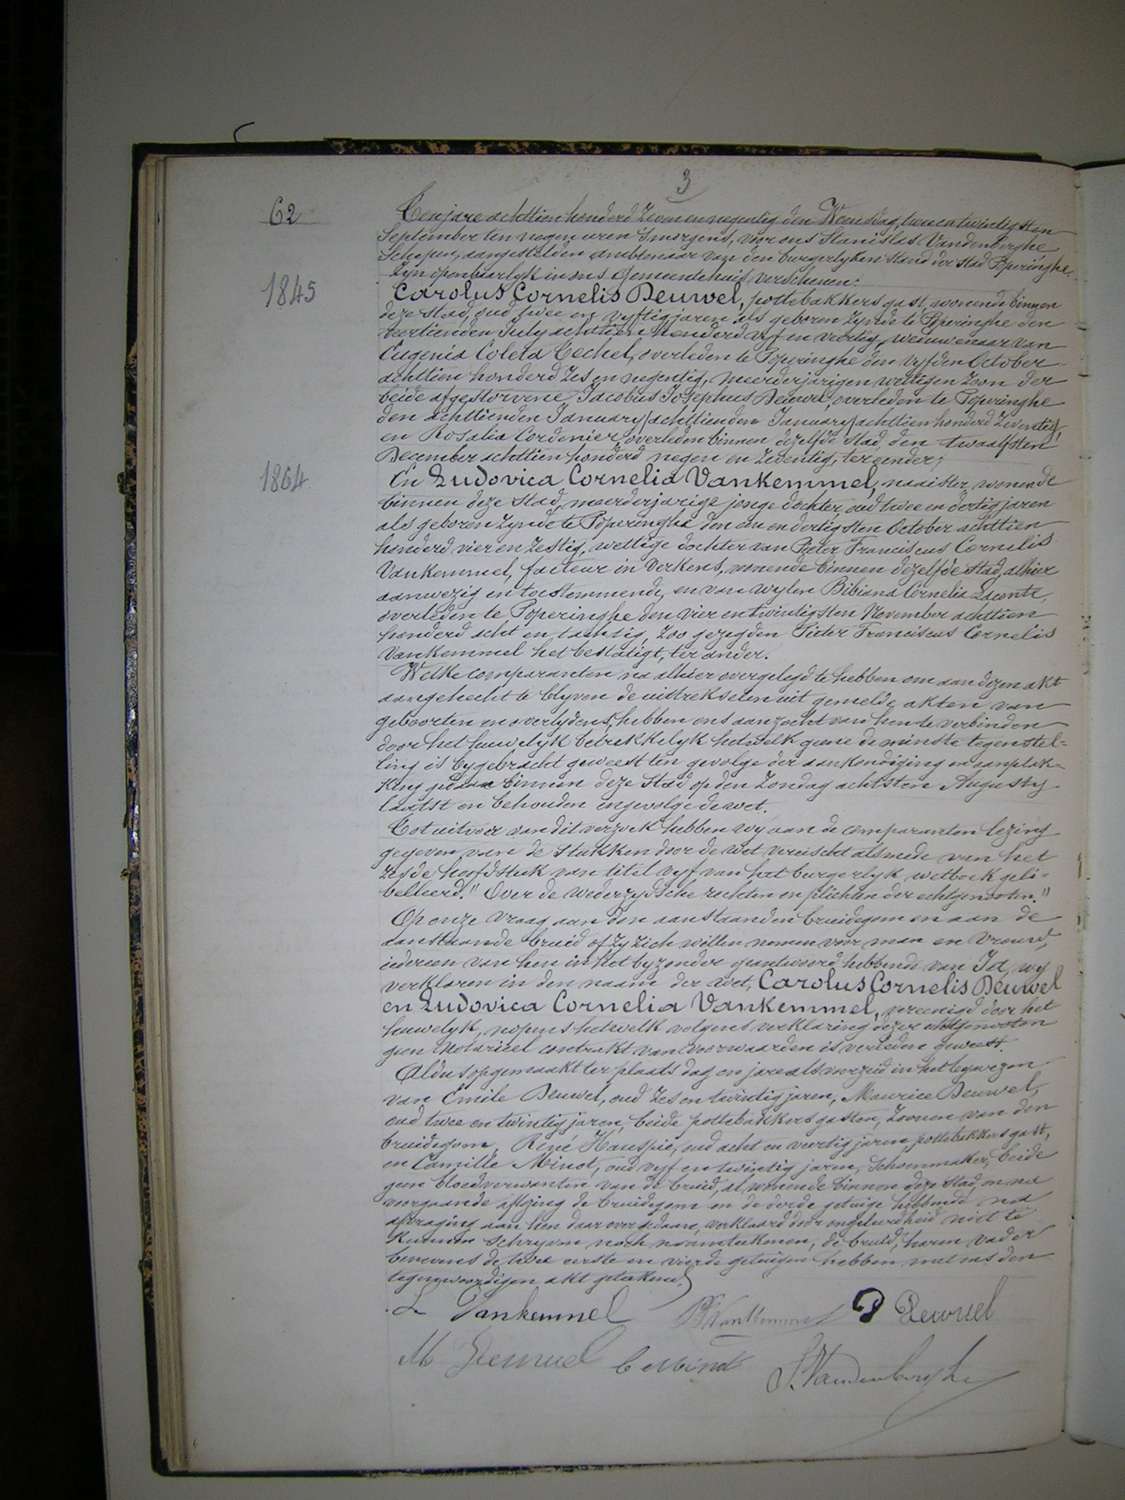 3
62
Ten jare achttien honderd zeven en negentig den Woensdag, twee en twintigsten
September ten negen uren 's morgens, voor ons Stanislas Vandenberghe
Schepen, aangestelden ambtenaar van den burgerlyken stand der stad Poperinghe
zyn openbaarlyk in ons Gemeentehuis verschenen:
1845
Carolus Cornelis Deuwel, pottebakkers gast, wonende binnen
deze stad, oud twee en vyftig jaren als geboren zynde te Poperinghe den
veertienden July achttien honderd vyf en veertig, weduwenaar van
Eugenia Coleta Techel, overleden te Poperinghe den vyfden October
achttien honderd zes en negentig, meerderjarigen wettigen zoon der
beide afgestorvene Jacobus Josephus Deuwel, overleden te Poperinghe
den achttienden January achttienden January achttien honderd zeventig,
en Rosalia Cordenier, overleden binnen dezelfde stad den twaalfsten
December achttien honderd negen en zeventig, ter eender;
1864
En Ludovica Cornelia Vankemmel, naaister, wonende
binnen deze stad, meerderjarige jonge dochter, oud twee en dertig jaren
als geboren zynde te Poperinghe den een en dertigsten October achttien
honderd vier en zestig, wettige dochter van Pieter Franciscus Cornelis
Vankemmel, facteur in verkens, wonende binnen dezelfde stad, alhier
aanwezig en toestemmende, en van wylen Bibiana Cornelia Laconte,
overleden te Poperinghe den vier en twintigsten November achttien
honderd acht en tachtig, zoo gezegden Pieter Franciscus Cornelis
Vankemmel het bestatigt, ter ander.
Welke comparanten na alhier overgelegd te hebben om aan dezen akt
aangehecht te blyven de uittrekselen uit gemelde akten van
geboorten en overlydens, hebben ons aanzocht van hen te verbinden
door het huwelyk betrekkelyk hetwelk geene de minste tegenstel-
ling is bygebracht geweest ten gevolge der aankondiging en aanplak-
king gedaan binnen deze stad op den Zondag achtsten Augusty
laatst en behouden ingevolge de wet.
Tot uitvoer van dit verzoek hebben wy aan de comparanten lezing
gegeven van de stukken door de wet vereischt alsmede van het
zesde hoofdstuk van titel vyf van het burgerlyk wetboek geli-
belleerd "Over de wederzydsche rechten en plichten der echtgenooten."
Op onze vraag aan den aanstaanden bruidegom en aan de
aanstaande bruid of zy zich willen nemen voor man en vrouw,
iedereen van hen in het byzonder geantwoord hebbende van Ja, wy
verklaren in den naam der wet, Carolus Cornelis Deuwel
en Ludovica Cornelia Vankemmel, vereenigd door het
huwelyk, nopens hetwelk volgens verklaring dezer echtgenooten
geen Notarieel contrakt van voorwaarden is verleden geweest.
Aldus opgemaakt ter plaats dag en jare als voorzeid in het bywezen
van Emile Deuwel, oud zes en twintig jaren, Maurice Deuwel,
oud twee en twintig jaren, beide pottebakkers gasten, zoonen van den
bruidegom, René Hauspie, oud acht en veertig jaren pottebakkers gast,
en Camille Minot, oud vyf en twintig jaren, schoenmaker, beide
geen bloedverwanten van de bruid, al wonende binnen deze stad, en na
voorgaande aflezing de bruidegom en de derde getuige hebbende na
afvraging aan hen daar over gedaan, verklaard door ongeleerdheid niet te
kunnen schryven noch naamteekenen; de bruid, haren vader
benevens de twee eerste en vierde getuigen hebben met ons den
tegenwoordigen akt geteekend.
L Vankemmel P Vankemmel Deuwel
M Deuwel C Minot S. Vandenberghe